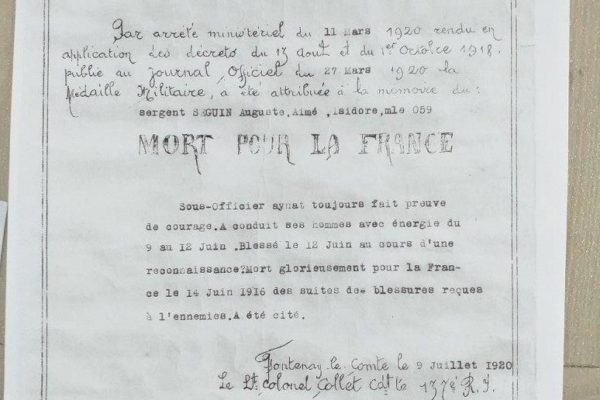 Par arrêté ministériel du 11 Mars 1920 rendu en
application des décrets du 13 Aout et du 1er Octobre 1918.
publié au journal Officiel du 27 Mars 1920 la
Médaille Militaire, à été attribuée à la mémoire du:
sergent SEGUIN Auguste,Aimé ,Isidore,mle 059
MORT POUR LA FRANCE
Sous-Officier aynat toujours fait preuve
de courage.A conduit ses hommes avec énergie du
9 au 12 Juin .Blessé le 12 Juin au cours d'une
reconnaissance?Mort glorieusement pour la Fran-
ce le 14 Juin 1916 des suites des blessures reçues
à l'ennemies.A été cité.
Fontenay le Comte le 9 Juillet 1920
Le Lt colonel Collet Cdt le 137e R.I.